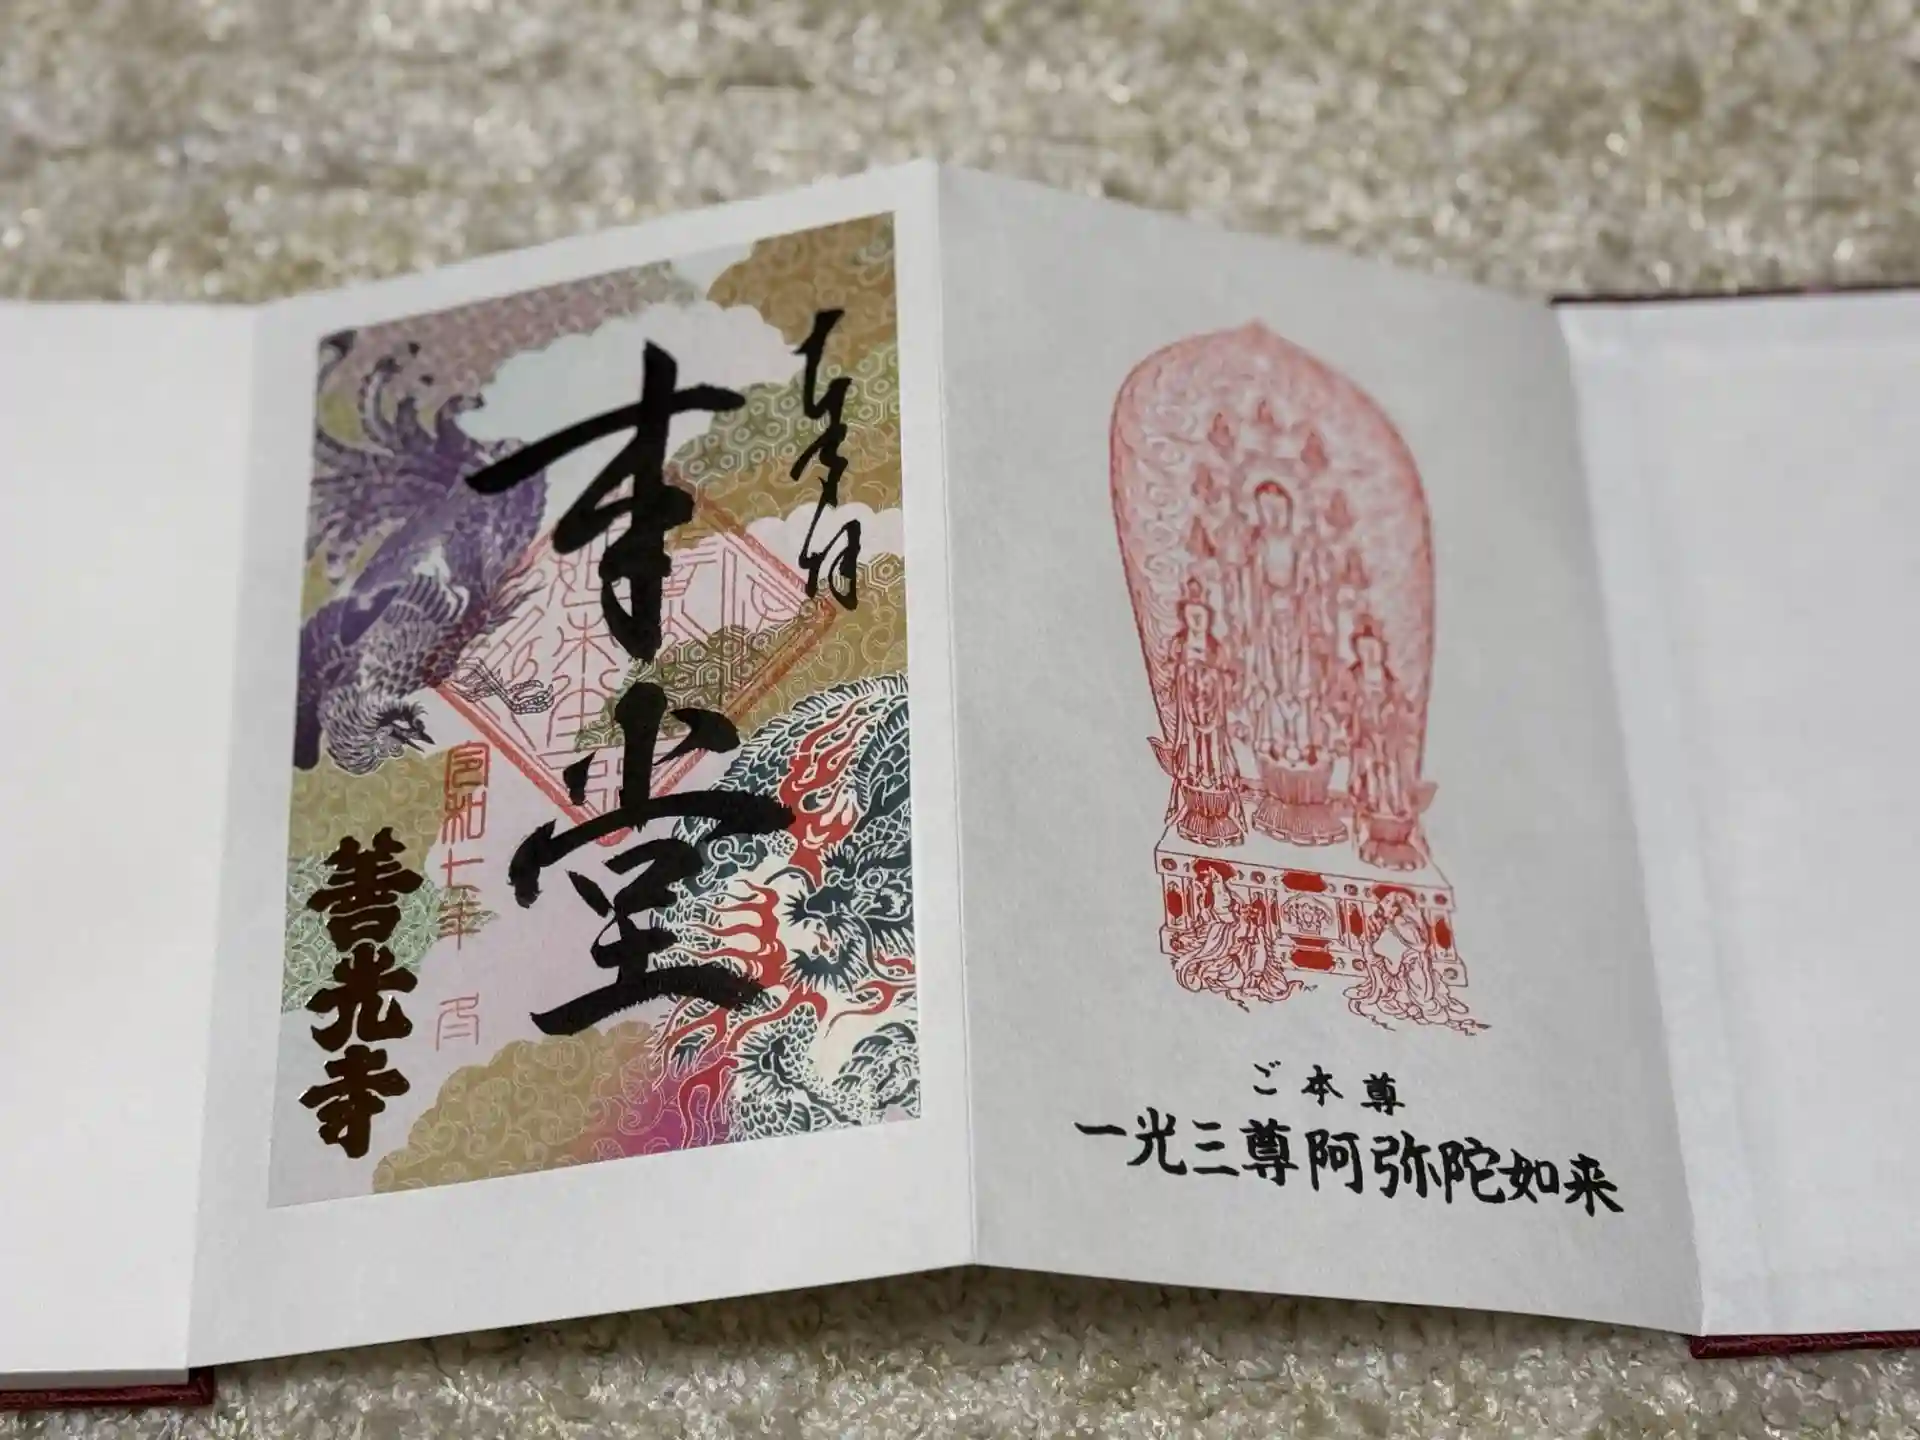 奉拝
本堂
令和七年 月
善光寺
ご本尊
一光三尊阿弥陀如来